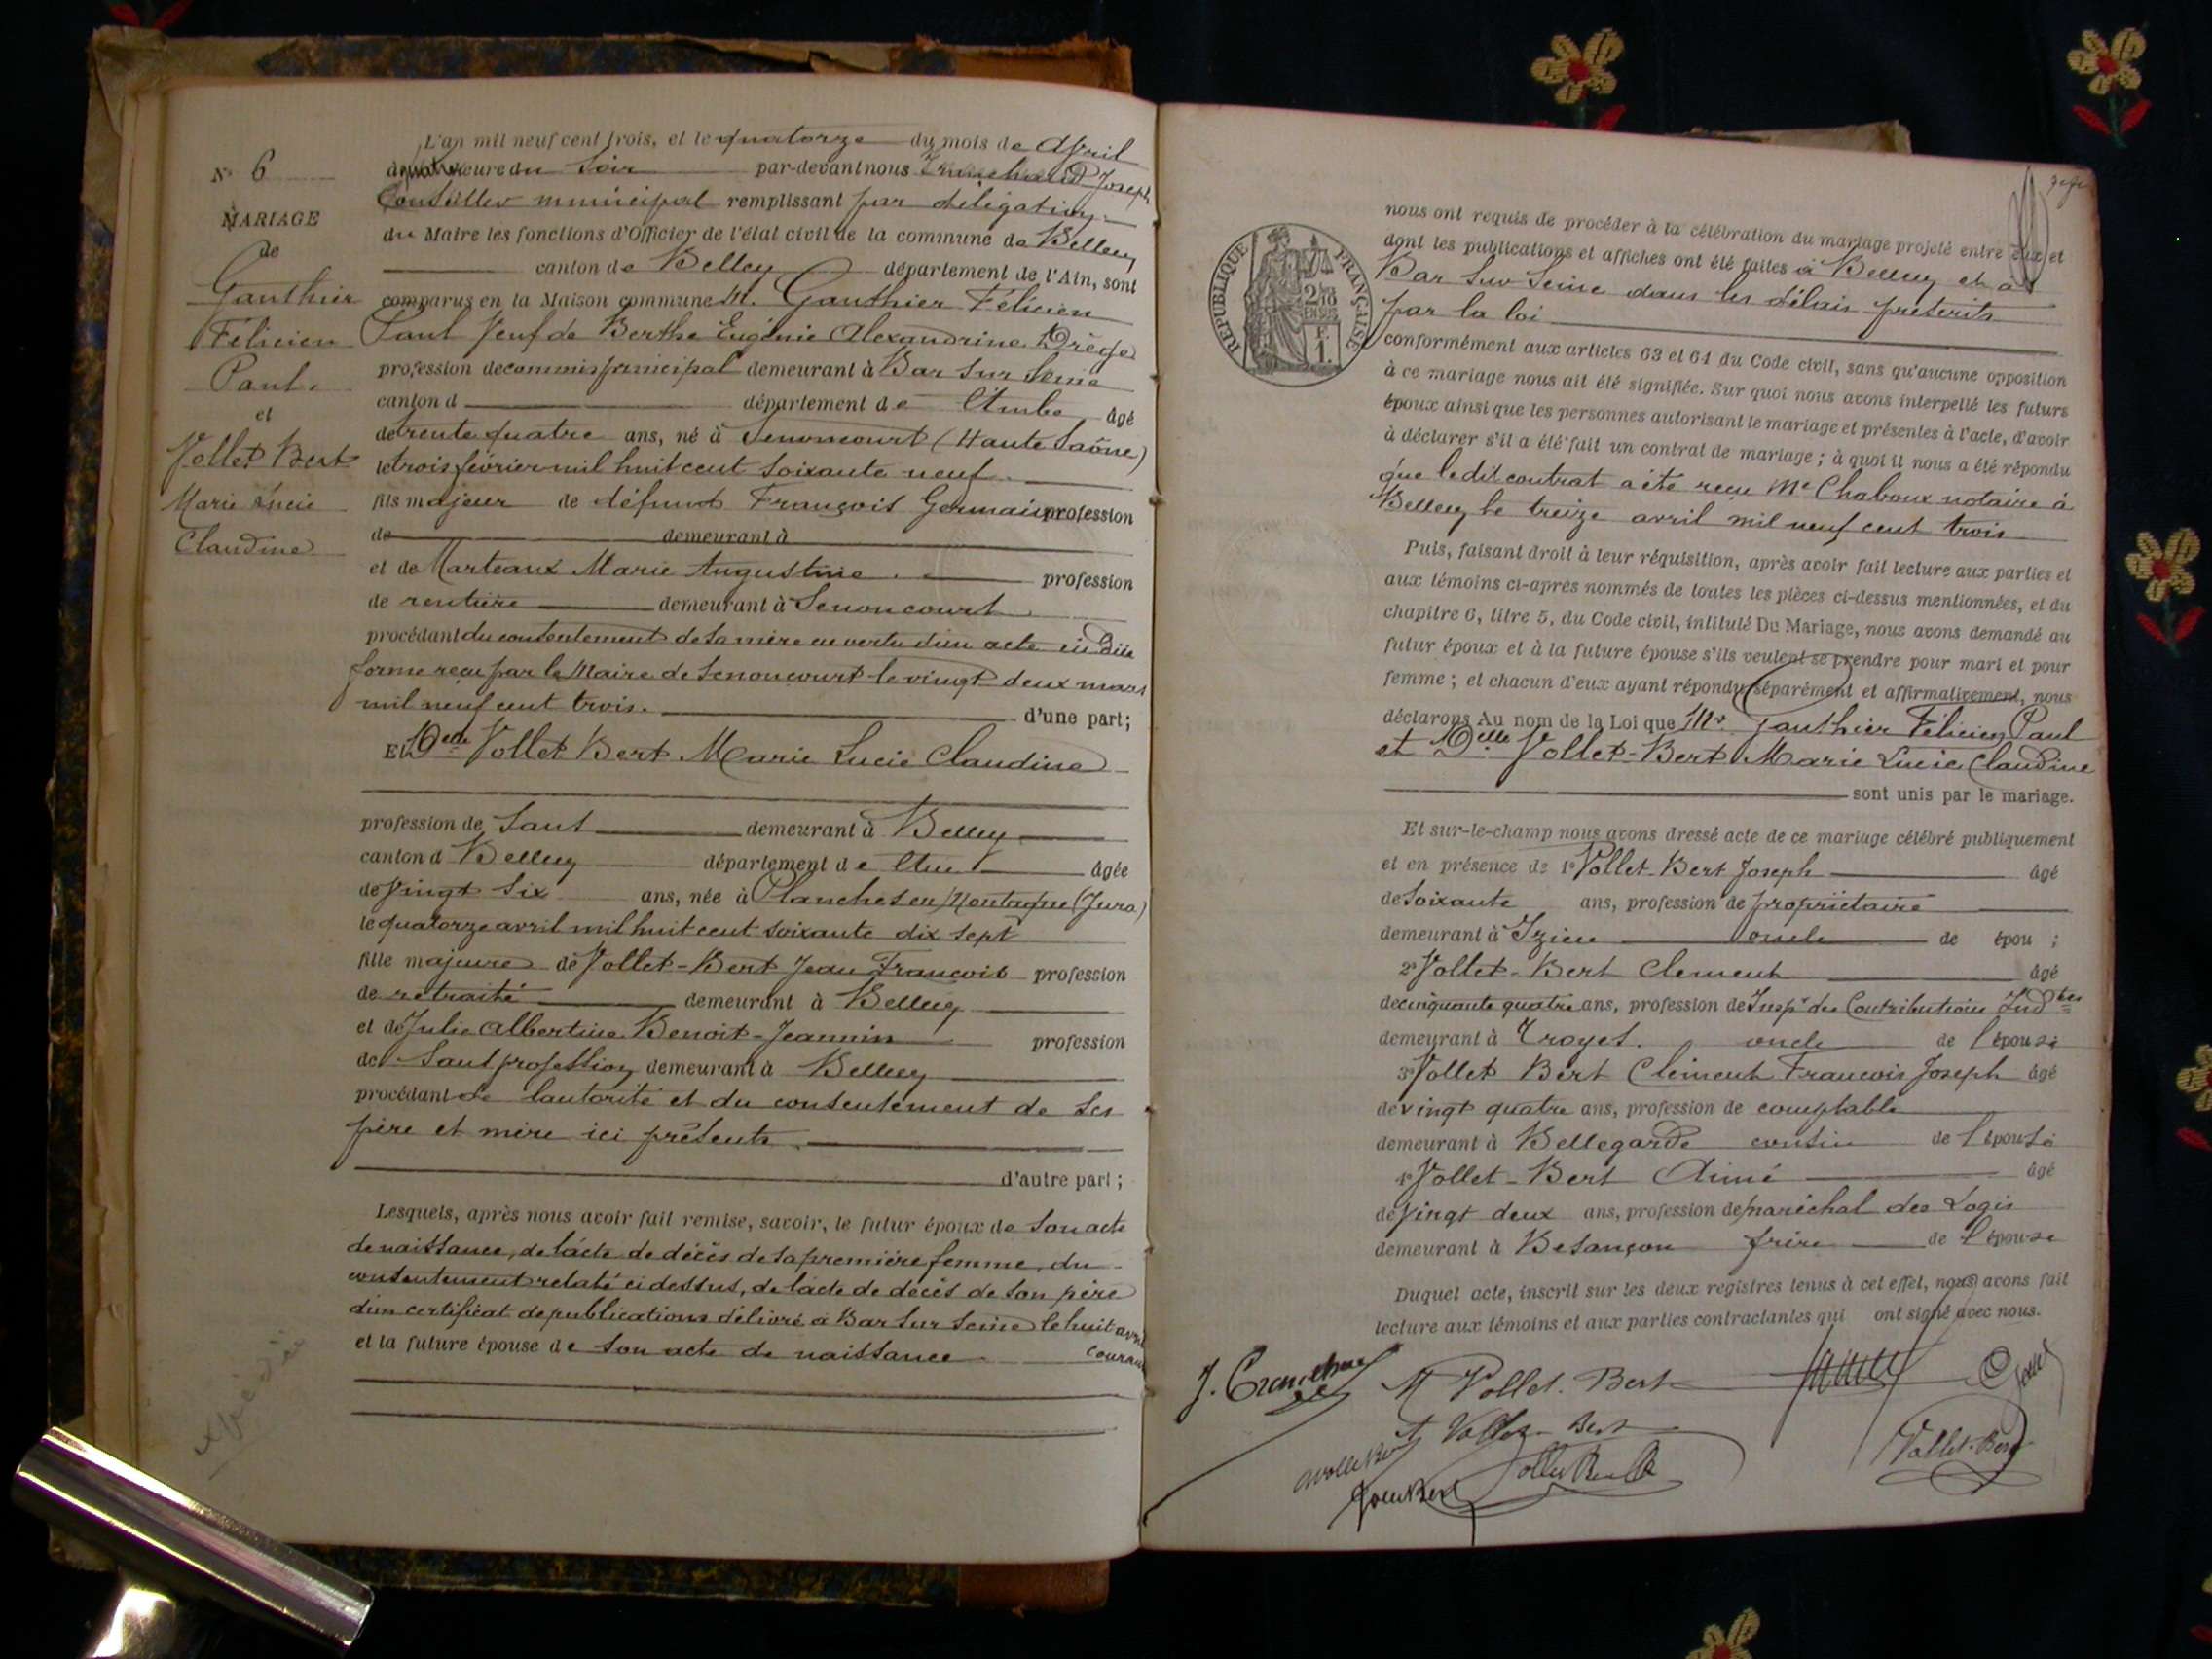 N° 6
MARIAGE
de
Gauthier
Félicien
Paul.
et
Vollet Bert
Marie Lucie
Claudine
L'an mil neuf cent trois, et le quatorze du mois de Avril
à heure du Soir par-devant nous Joseph
Conseiller municipal remplissant par délégation
du Maire les fonctions d'Officier de l'état civil de la commune de Belley
canton de Belley département de l'Ain, sont
comparus en la Maison commune M. Gauthier Félicien
Paul Veuf de Berthe Eugénie Alexandrine Drège
profession de commis principal demeurant à Bar sur Seine
canton d département de l'Aube âgé
de trente quatre ans, né à Senoncourt (Haute Saône)
le trois février mil huit cent soixante neuf
fils majeur de défunt François Germain profession
de demeurant à
et de Marteaux Marie Augustine profession
de rentière demeurant à Senoncourt
procédant du consentement de sa mère en vertu d'un acte en due
forme reçu par le Maire de Senoncourt le vingt deux mars
mil neuf cent trois. d'une part;
Et Delle Vollet Bert Marie Lucie Claudine
profession de Sans demeurant à Belley
canton d Belley département de l'Ain âgée
de Vingt Six ans, née à Planches en Montagne (Jura)
le quatorze avril mil huit cent soixante dix sept
fille majeure de Vollet-Bert Jean François profession
de retraité demeurant à Belley
et de Julie Albertine Benoit-Jeannin profession
de Sans profession demeurant à Belley
procédant de l'autorité et du consentement de ses
père et mère ici présents
d'autre part;
Lesquels, après nous avoir fait remise, savoir, le futur époux de son acte
de naissance, de l'acte de décès de sa première femme, du
consentement relaté ci dessus, de l'acte de décès de son père
d'un certificat de publications délivré à Bar sur Seine le huit avril
courant
et la future épouse de son acte de naissance
RÉPUBLIQUE FRANÇAISE
2/10 EN SUS
F. 1.
nous ont requis de procéder à la célébration du mariage projeté entre eux et
dont les publications et affiches ont été faites à Belley et à
Bar sur Seine dans les délais préscrits
par la loi
conformément aux articles 63 et 64 du Code civil, sans qu'aucune opposition
à ce mariage nous ait été signifiée. Sur quoi nous avons interpellé les futurs
époux ainsi que les personnes autorisant le mariage et présentes à l'acte, d'avoir
à déclarer s'il a été fait un contrat de mariage; à quoi il nous a été répondu
que le dit contrat a été reçu Me Chaboux notaire à
Belley le treize avril mil neuf cent trois
Puis, faisant droit à leur réquisition, après avoir fait lecture aux parties et
aux témoins ci-après nommés de toutes les pièces ci-dessus mentionnées, et du
chapitre 6, titre 5, du Code civil, intitulé Du Mariage, nous avons demandé au
futur époux et à la future épouse s'ils veulent se prendre pour mari et pour
femme; et chacun d'eux ayant répondu séparément et affirmativement, nous
déclarons Au nom de la Loi que Mr. Gauthier Félicien Paul
et Delle Vollet-Bert Marie Lucie Claudine
sont unis par le mariage.
Et sur-le-champ nous avons dressé acte de ce mariage célébré publiquement
et en présence de 1° Vollet-Bert Joseph âgé
de Soixante ans, profession de propriétaire
demeurant à Izieu oncle de épou ;
2° Vollet-Bert Clement âgé
de cinquante quatre ans, profession de Inspr des Contributions Indtes
demeurant à Troyes. oncle de l'épouse
3° Vollet Bert Clément François Joseph âgé
de vingt quatre ans, profession de comptable
demeurant à Bellegarde cousin de l'épouse
4° Vollet-Bert Aimé âgé
de Vingt deux ans, profession de maréchal des Logis
demeurant à Besançon frère de l'épouse
Duquel acte, inscrit sur les deux registres tenus à cet effet, nous avons fait
lecture aux témoins et aux parties contractantes qui ont signé avec nous.
M Vollet-Bert
Vollet-Bert